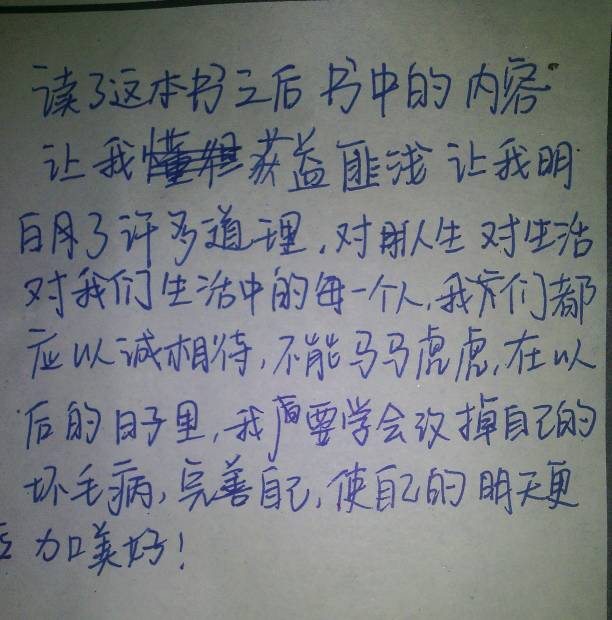 读了这本书之后 书中的内容
让我获益匪浅 让我明
白了许多道理，对人生 对生活
对我们生活中的每一个人，我们都
应以诚相待，不能马马虎虎，在以
后的日子里，我要学会改掉自己的
坏毛病，完善自己，使自己的明天更
加美好！